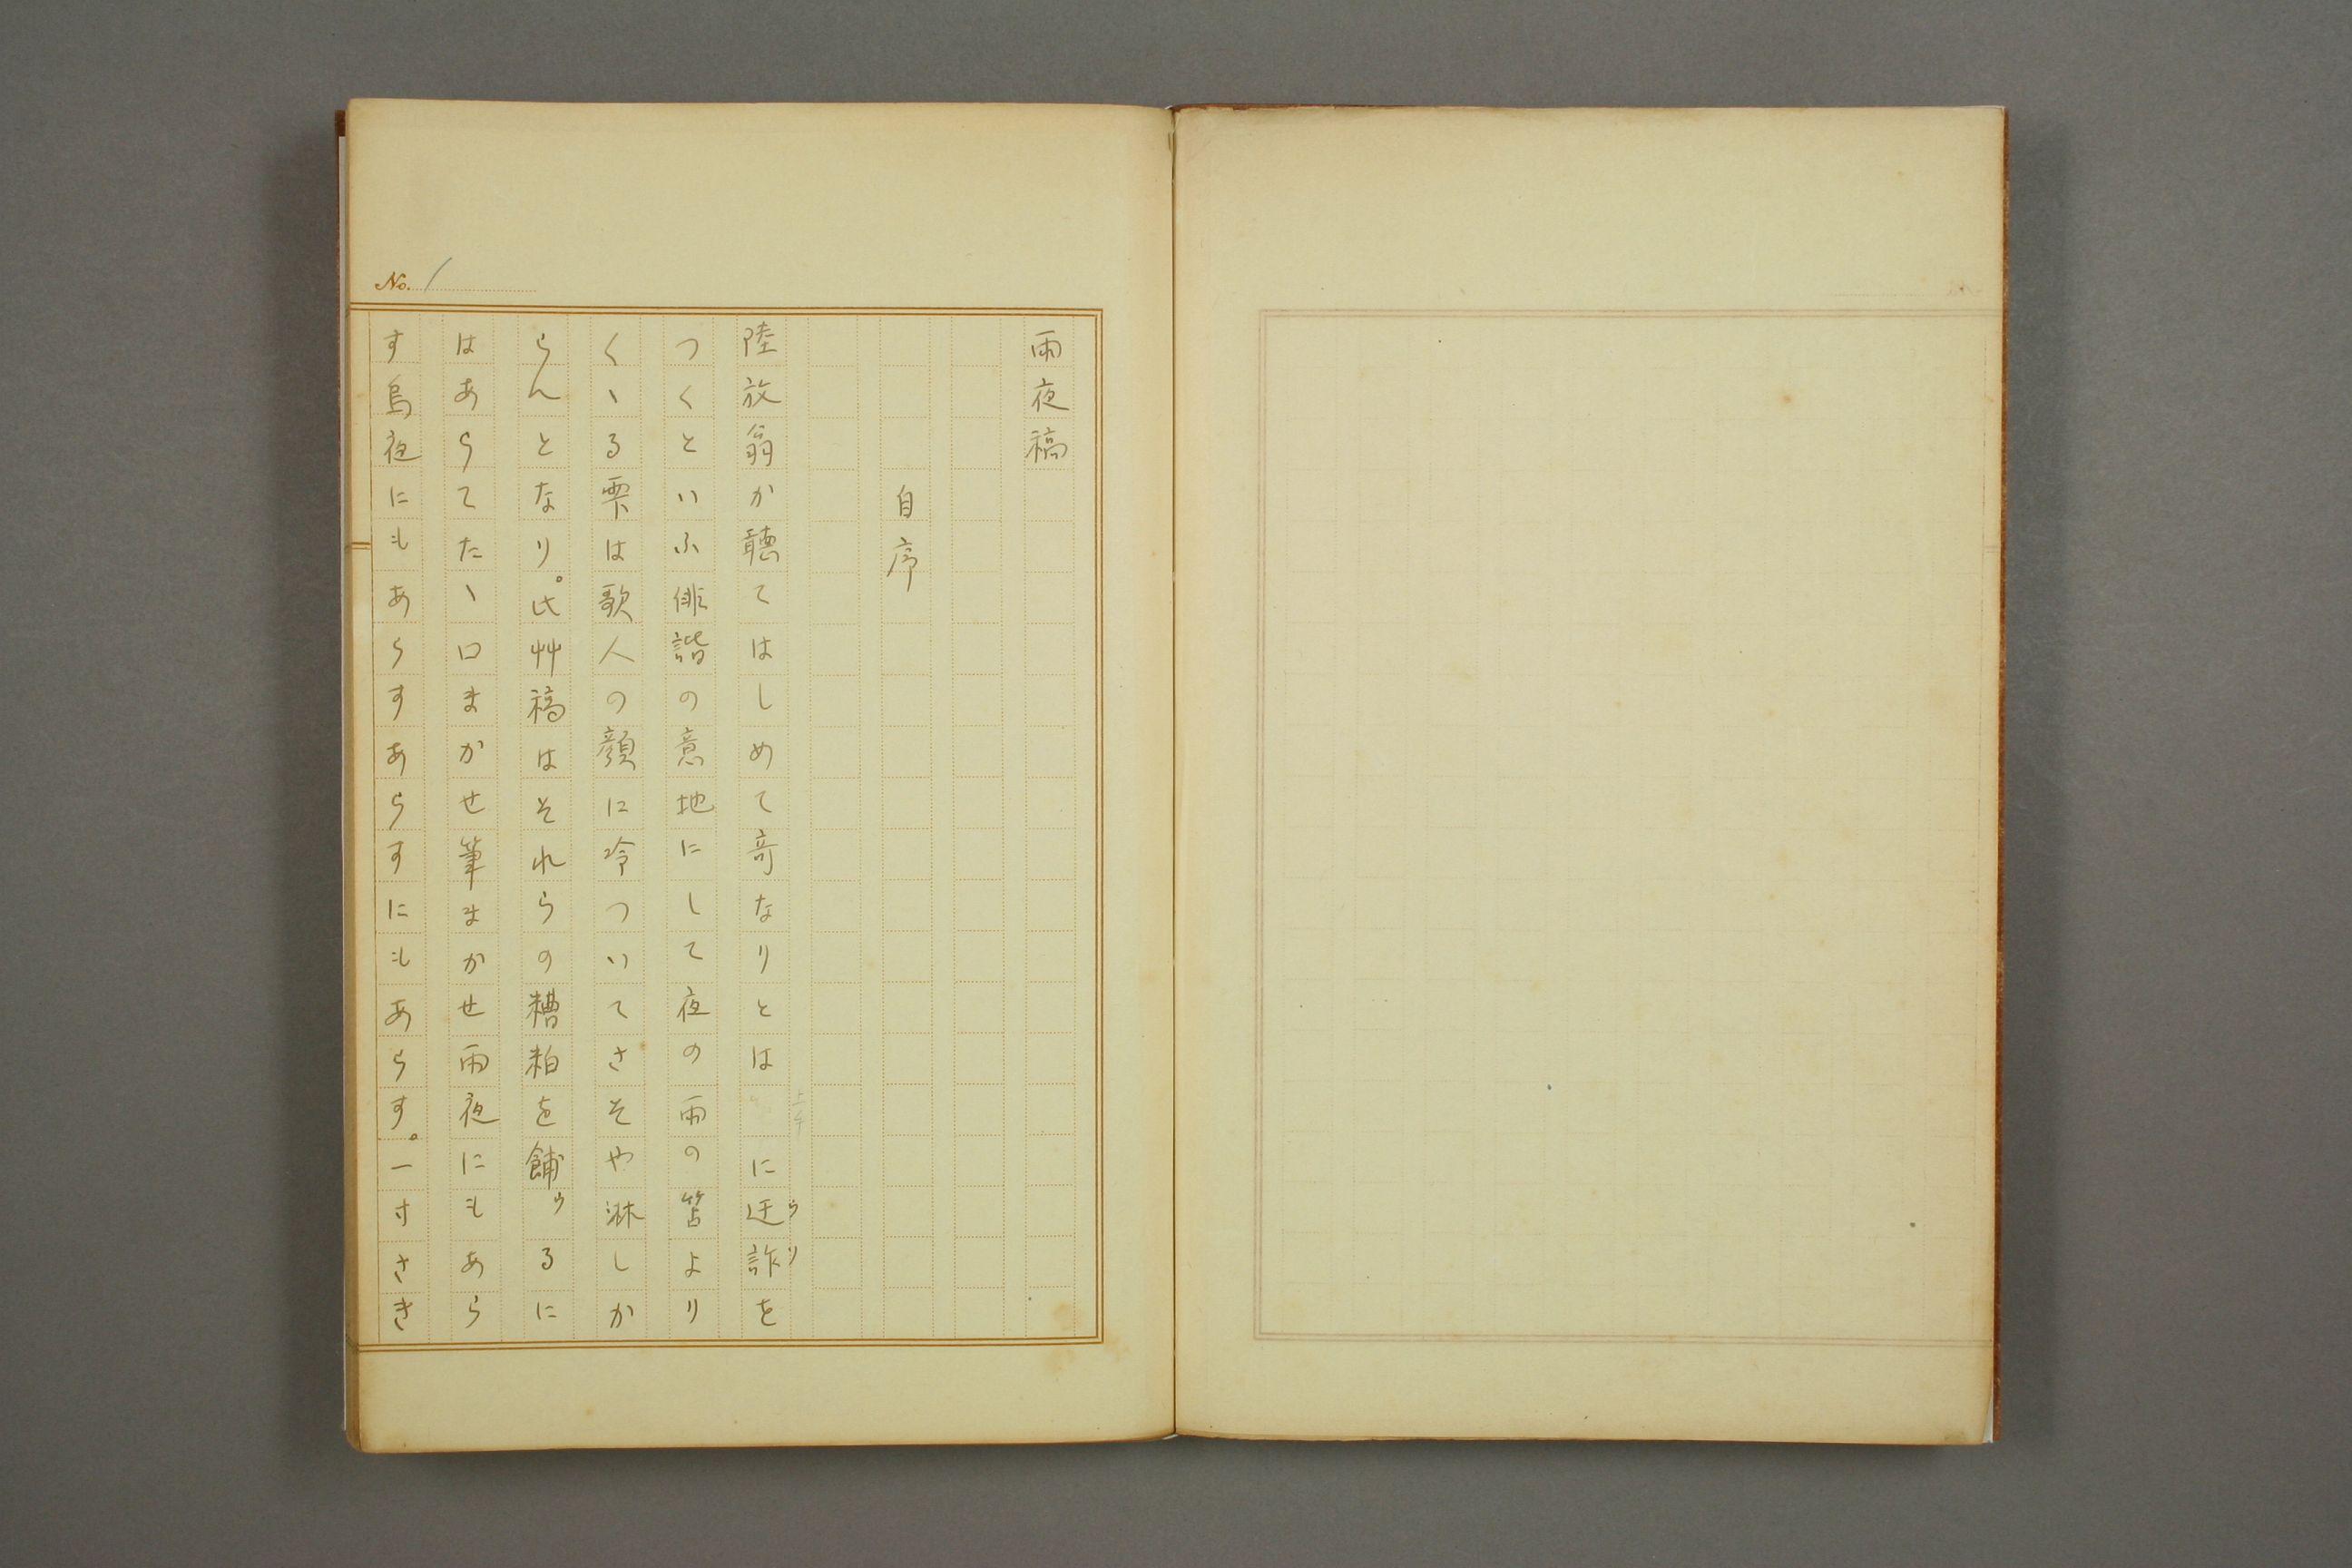 No. 1
雨夜稿
自序
陸放翁か聴てはしめて奇なりとは に迂詐を
ウソ
つくといふ俳諧の意地にして夜の雨の笘より
くゝる雫は歌人の顔に冷ついてさそや淋しか
らんとなり。此艸稿はそれらの糟粕を餔ウるに
はあらてたゝ口まかせ筆まかせ雨夜にもあら
す烏夜にもあらすあらすにもあらす。一寸さき